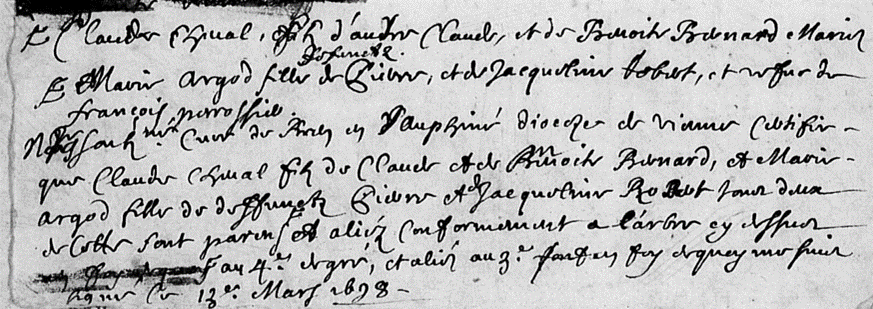 Claude Chval, fils d'autre Claude, et de Benoite Bernard Mariez
deffunctz
Et Marie Argod fille de Pierre, et de Jacqueline Robert, et vefve de
françois perossier.
Curé de en Dauphiné dioceze de vienne Certifie
que Claude Chval filz de Claude et de Benoite Bernard, et Marie
argod fille de deffunctz Pierre et Jacqueline Robert tous deux
de Cotte sont parens et aliéz Conformement a l'arbre cy dessus
au 4.e degré, et aliéz au 3.e foy dequoy me suis
signé ce 13.e Mars 1698